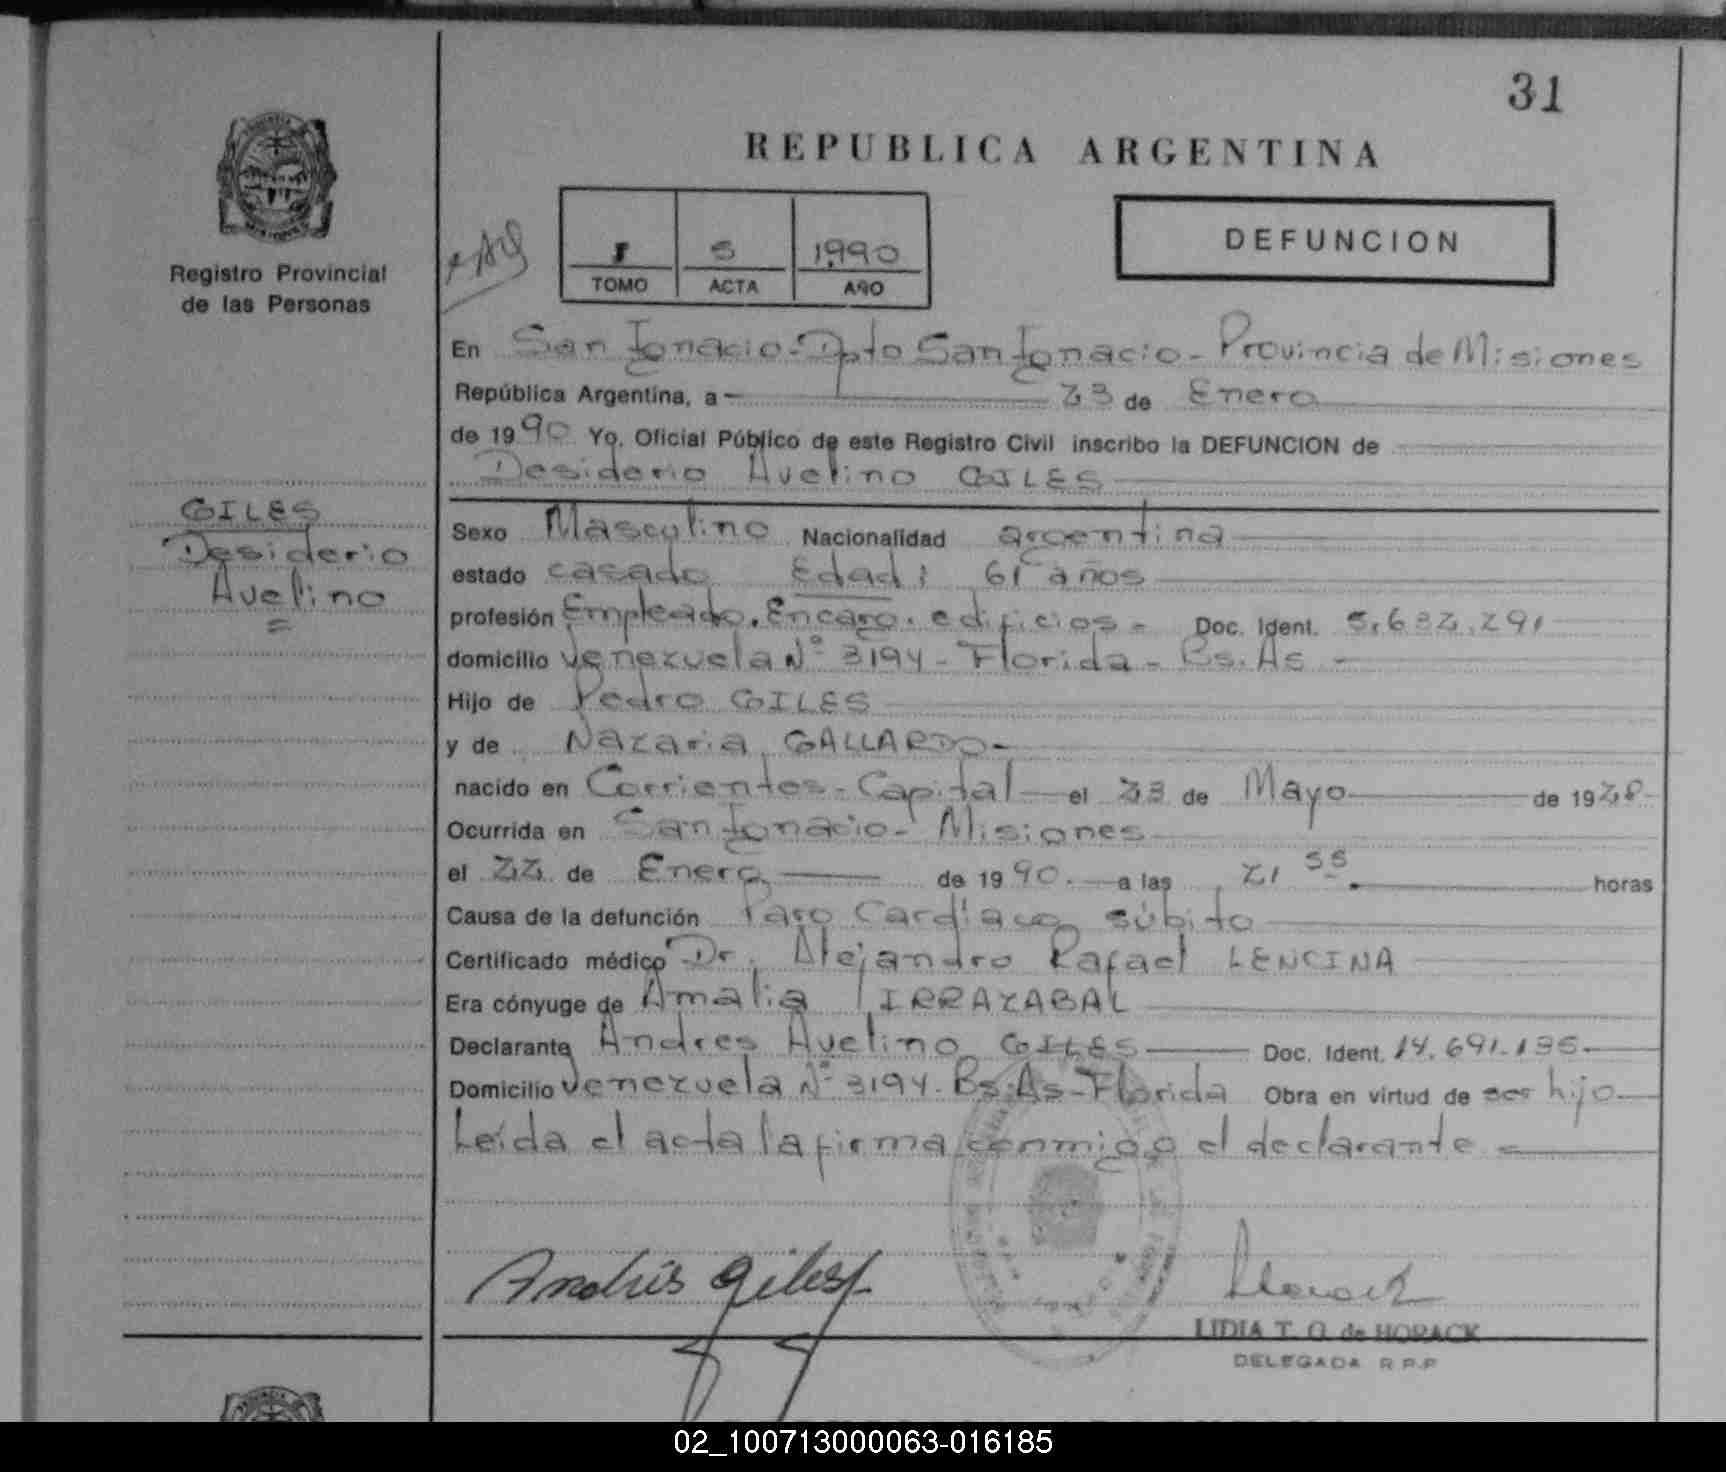 31
REPUBLICA ARGENTINA
Registro Provincial
de las Personas
5 1990
TOMO ACTA AÑO
DEFUNCION
En San Ignacio - Dpto San Ignacio - Provincia de Misiones
República Argentina, a 23 de Enero
de 1990 Yo, Oficial Público de este Registro Civil inscribo la DEFUNCION de
Desiderio Avelino GILES
GILES
Desiderio
Avelino
Sexo Masculino Nacionalidad argentina
estado casado Edad: 61 años
profesión Empleado. Encargo. edificios - Doc. Ident. 5.632.291
domicilio Venezuela Nº 3194 - Florida - Bs. As -
Hijo de Pedro GILES
y de Nazaria GALLARDO -
nacido en Corrientes - Capital el 23 de Mayo de 1928
Ocurrida en San Ignacio - Misiones
el 22 de Enero de 1990. a las 21 55. horas
Causa de la defunción Paro Cardíaco súbito
Certificado médico Dr. Alejandro Rafael LENCINA
Era cónyuge de Amalia IRRAZABAL
Declarante Andres Avelino GILES Doc. Ident. 14.691.135
Domicilio Venezuela Nº 3194. Bs. As - Florida Obra en virtud de ser hijo
Leída el acta la firma conmigo el declarante =
Andrés Giles
Horack
LIDIA T. O. de HORACK
DELEGADA R.P.P
02_100713000063-016185